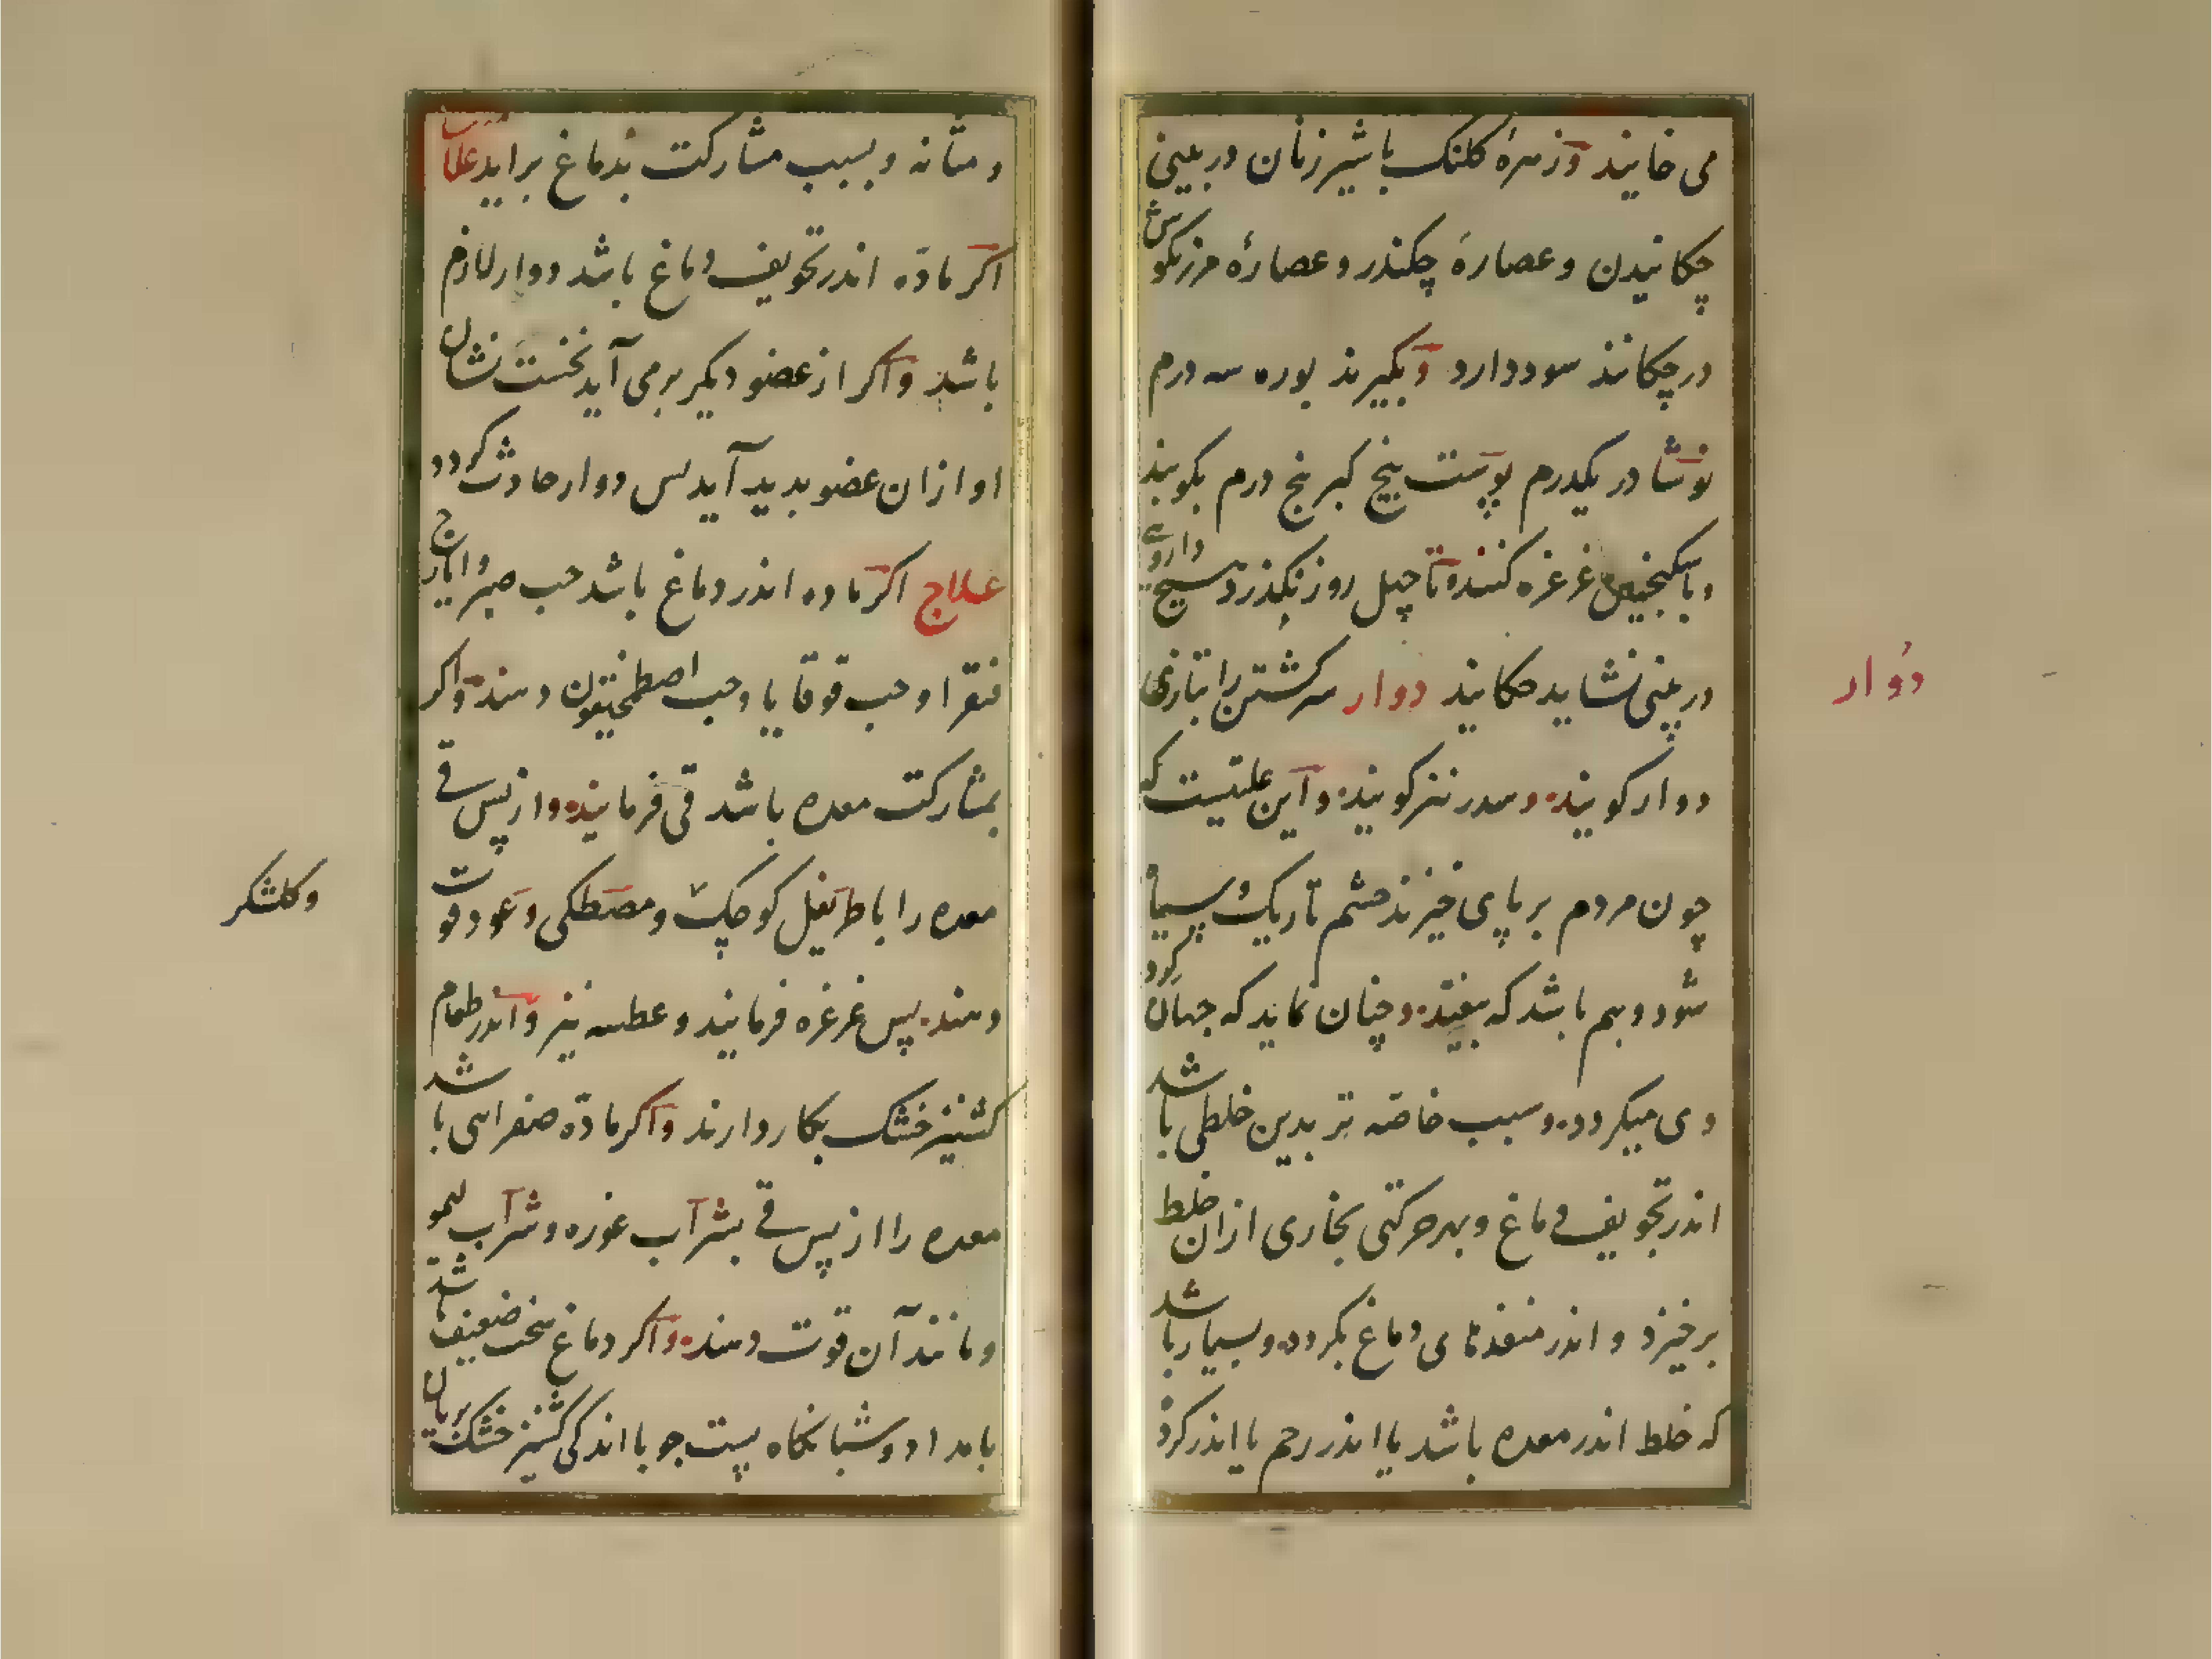 می خایند و زهرهٔ کلنک باشیر زنان در بینی
چکانیدن و عصارهٔ چکندر و عصارهٔ مرزنکوش
در چکانند سود دارد و بکیرند بوره سه درم
نوشادر یکدرم پوست بیخ کبر پنج درم بکوبند
و با سکنجبین غرغره کنند و تا چهل روز نکذرد هیچ داروی
در بینی نشاید چکانید دوار سرکشتن را بتازی
دوار کویند و سدر نیز کویند و این علتیست که
چون مردم بر پای خیزند چشم تاریک و سیاه
شود و بیم باشد که بیفتد و چنان نماید که جهان کرد
وی میکردد و سبب خاصه تر بدین خلطی باشد
اندر تجویف دماغ و بهر حرکتی بخاری ازان خلط
برخیزد و اندر منفذهای دماغ بکردد و بسیار باشد
که خلط اندر معده باشد یا اندر رحم یا اندر کرده
دوار
و مثانه و بسبب مشارکت بدماغ براید علامت
اکر ماده اندر تجویف دماغ باشد دوار لازم
باشد و اکر از عضو دیکر برمی آید نخست نشان
او ازان عضو بدید آید پس دوار حادث کردد
علاج اکر ماده اندر دماغ باشد حب صبر و ایارج
فیقرا و حب قوقایا و حب اصطمخیقون دهند و اکر
بمشارکت معده باشد قی فرمایند و از پس قی
معده را باطریفل کوچک و مصطکی و عود قوت
دهند پس غرغره فرمایند و عطسه نیز و اندر طعام
کشنیز خشک بکار دارند و اکر ماده صفرایی باشد
معده را از پس قی بشراب غوره و شراب لیمو
و مانند آن قوت دهند و اکر دماغ سخت ضعیف باشد
بامداد و شبانکاه پست جو با اندکی کشنیز خشک بریان
و کلشکر